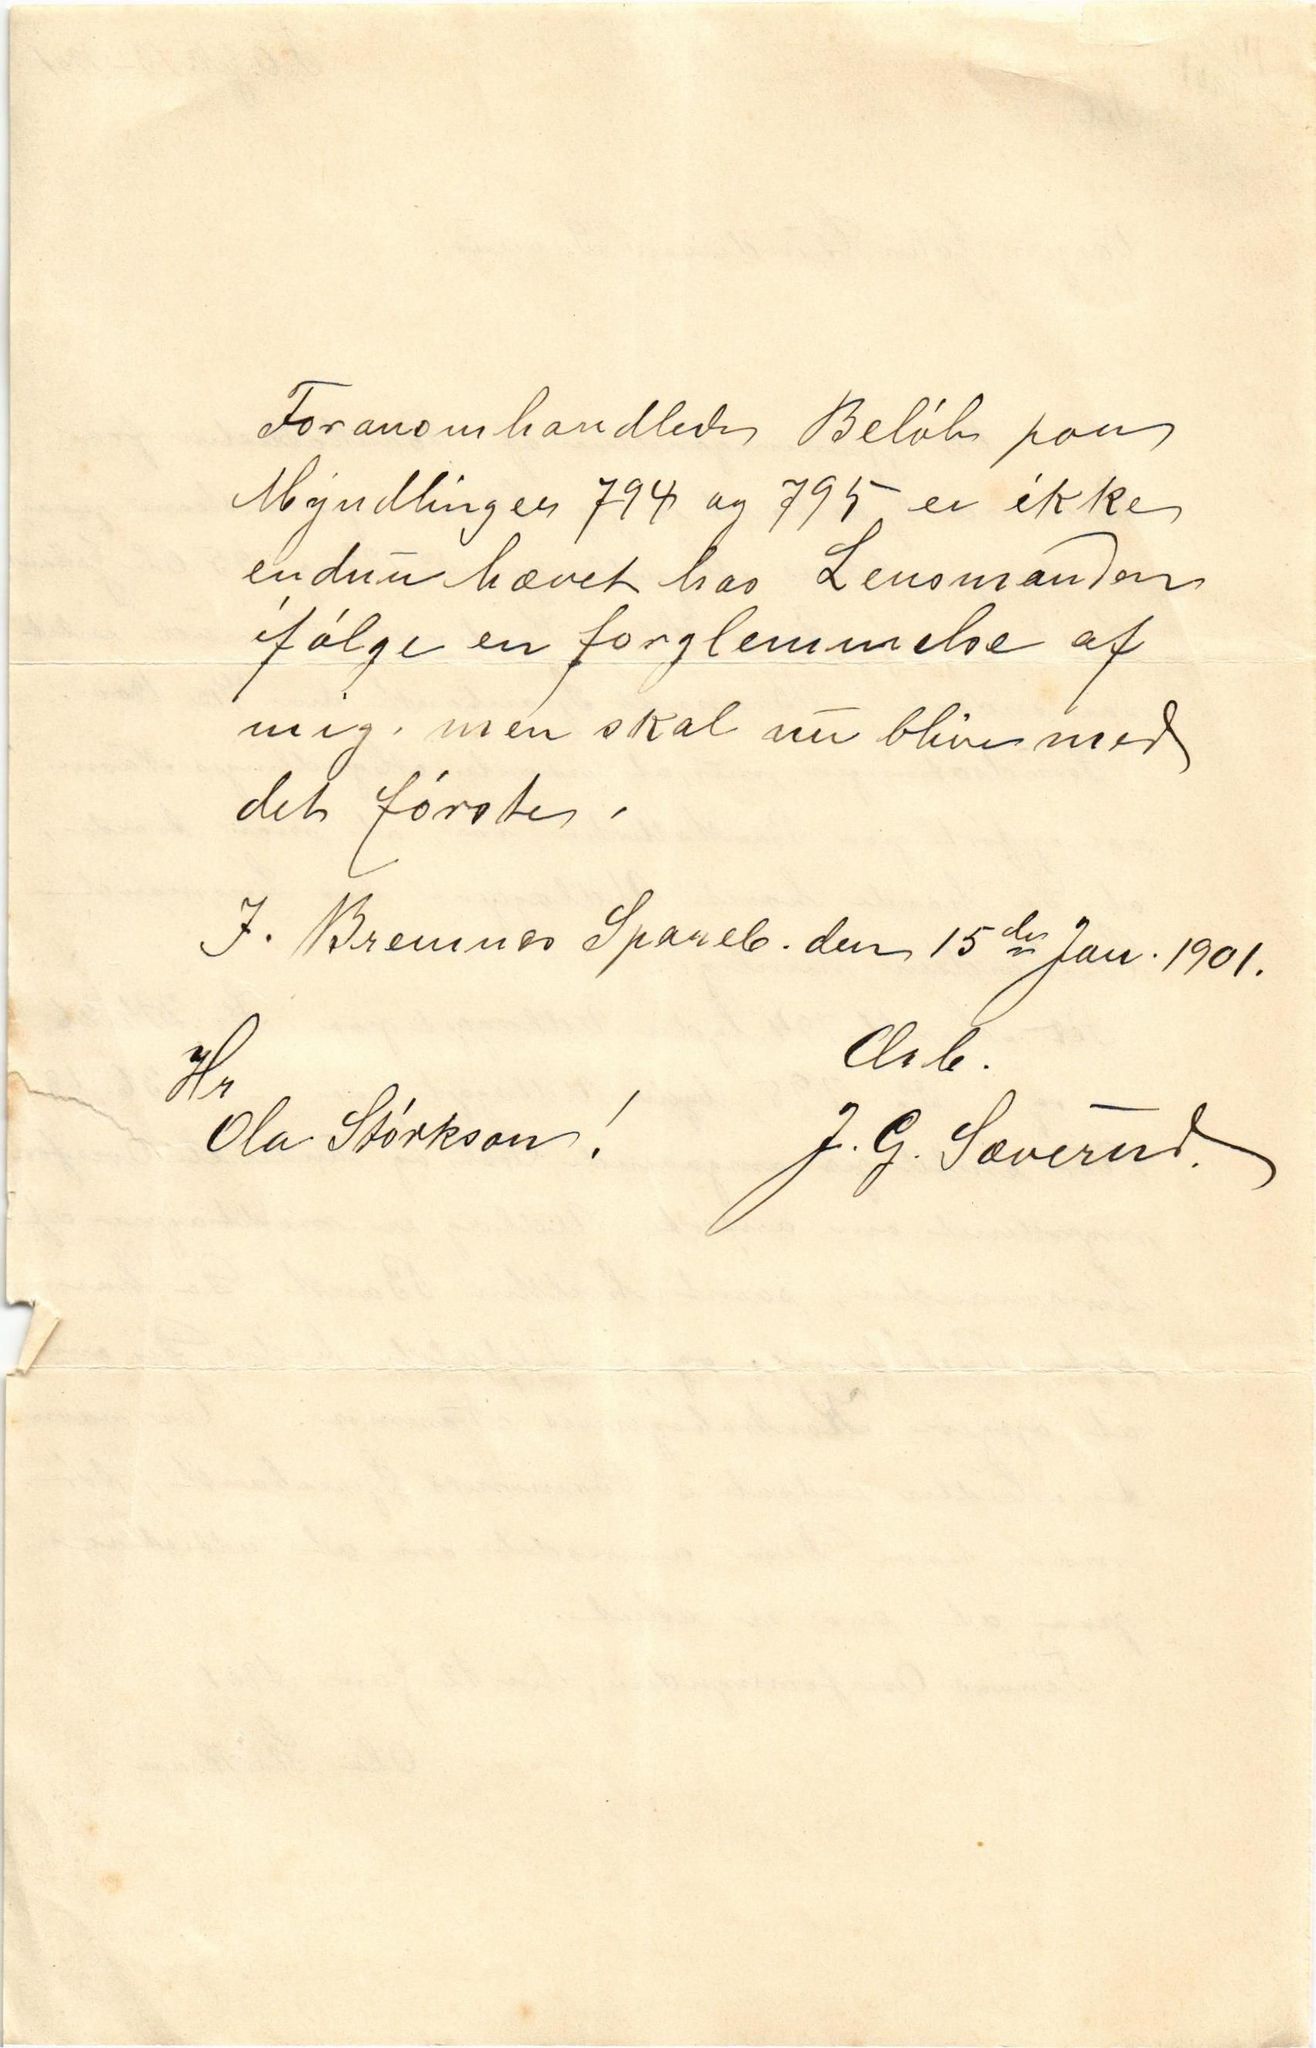 Foranomhandlede Beløb paa
Myndlinger 794 og 795 er ikke
endnu hævet hos Lensmanden
ifølge en forglemmelse af
mig. men skal nu blive med
det første.
I. Bremnes Spareb. den 15de Jan. 1901.
Hr
Ola Størkson!
Erb.
J. G. Sæverud.